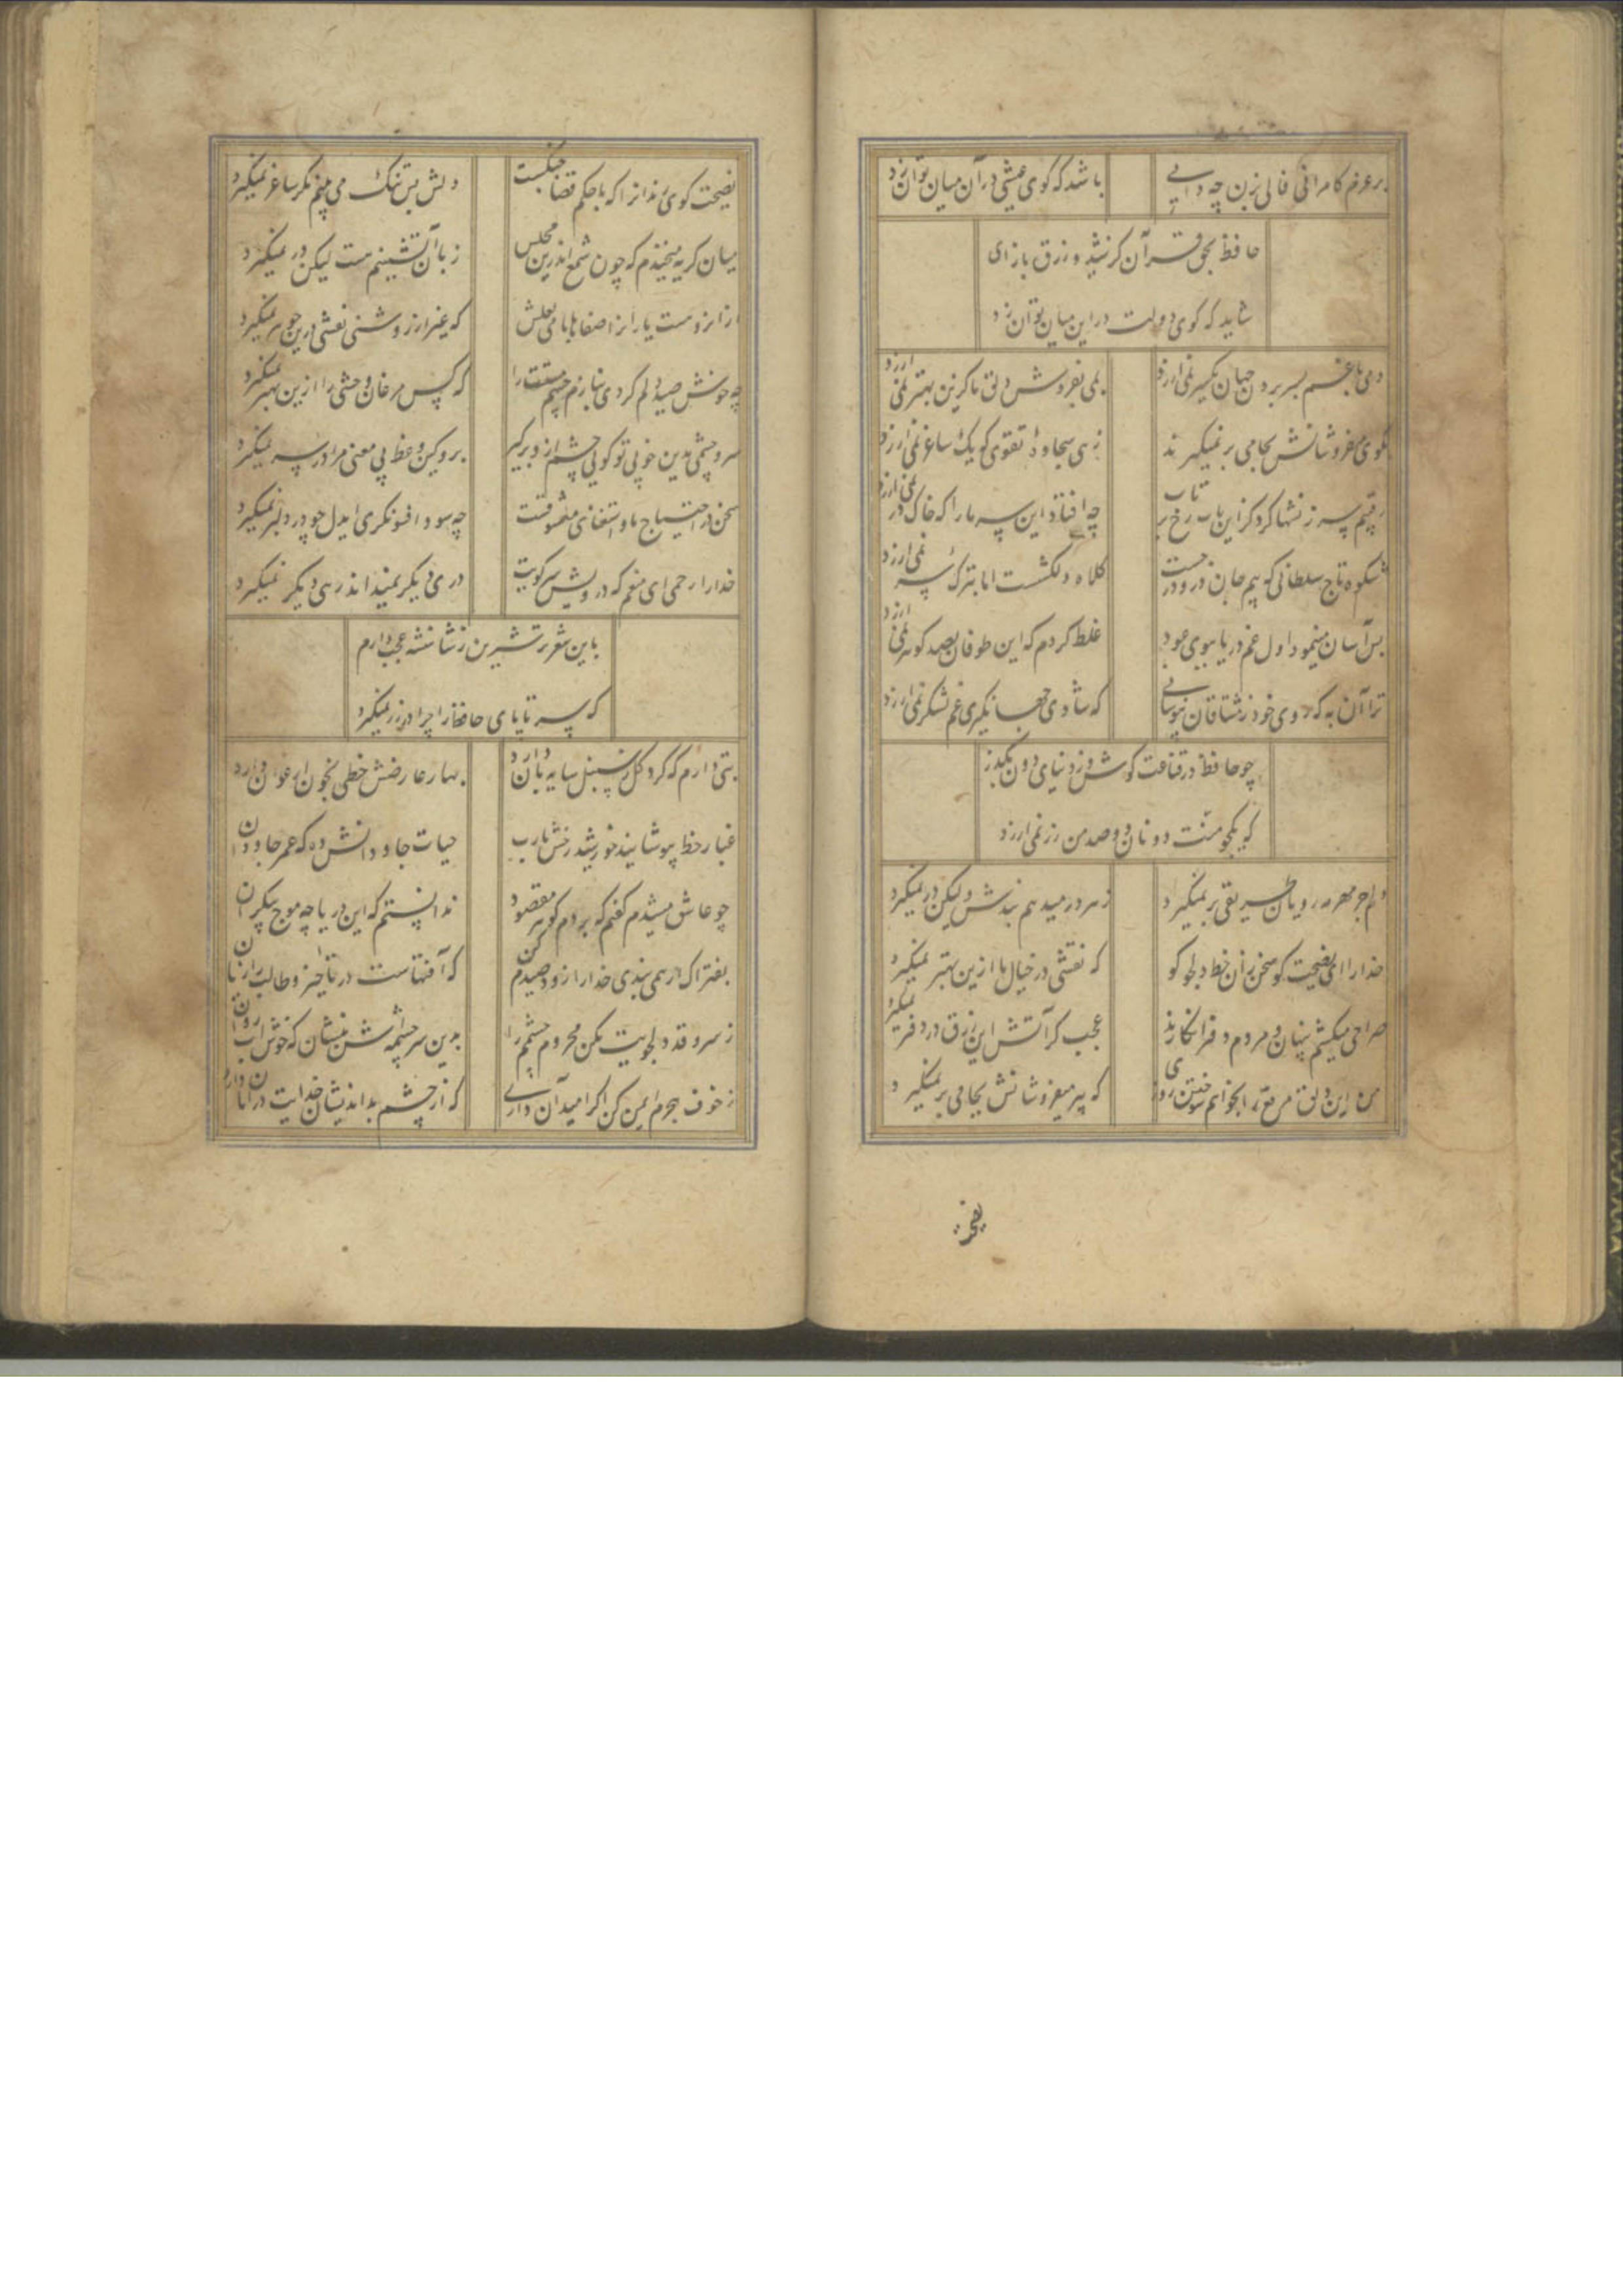 بر عزم کامرانی فالی بزن چه دانی
باشد که کوی عیشی در آن میان توان زد
حافظ بحق قرآن کز شید و زرق بازای
شاید که کوی دولت در این میان توان زد
دمی با غم بسر بردن جهان یکسر نمی ارزد
بمی بفروش دلق ما کزین بهتر نمی ارزد
بکوی می فروشانش بجامی بر نمیگیرند
زهی سجاده تقوی که یک ساغر نمی ارزد
رقیبم سرزنشها کرد کز این باب رخ بر تاب
چه افتاد این سر ما را که خاک در نمی ارزد
شکوه تاج سلطانی که بیم جان درو درجست
کلاه دلکشست اما بترک سر نمی ارزد
بس آسان مینمود اول غم دریا ببوی سود
غلط کردم که این طوفان بصد کوهر نمی ارزد
ترا آن به که روی خود ز مشتاقان بپوشانی
که شادی جهانگیری غم لشکر نمی ارزد
چو حافظ در قناعت کوش و از دنیای دون بگذر
که یکجو منت دونان دو صد من زر نمی ارزد
دلم جز مهر مه رویان طریقی بر نمیگیرد
ز هر در میدهم پندش ولیکن در نمیگیرد
خدا را ای نصیحت کو سخن زان خط دلجو کو
که نقشی در خیال ما ازین بهتر نمیگیرد
صراحی میکشم پنهان و مردم دفتر انکارند
عجب کر آتش این زرق در دفتر نمیگیرد
من این دلق مرقع را بخواهم سوختن روزی
که پیر میفروشانش بجامی بر نمیگیرد
نصیحت کوی رندانرا که با حکم قضا جنگست
دلش بس تنک می بینم مکر ساغر نمیگیرد
میان کریه میخندم که چون شمع اندرین مجلس
زبان آتشینم هست لیکن در نمیگیرد
که غیر از روشنی نقشی درین جوهر نمیگیرد
چه خوش صید دلم کردی بنازم چشم مستت را
که کس مرغان وحشی را ازین بهتر نمیگیرد
سر و چشمی بدین خوبی تو کویی چشم ازو برکیر
برو کین وعظ بی معنی مرا در سر نمیگیرد
سخن در احتیاج ما و استغنای معشوقست
چه سود افسونکری ایدل چو در دلبر نمیگیرد
خدا را رحمی ای منعم که درویش سر کویت
دری دیکر نمیداند رهی دیکر نمیگیرد
باین شعر تر شیرین ز شاهنشه عجب دارم
که سر تا پای حافظ را چرا در زر نمیگیرد
بتی دارم که کرد کل ز سنبل سایه بان دارد
بهار عارضش خطی بخون ارغوان دارد
غبار خط بپوشانید خورشید رخش یارب
حیات جاودانش ده که عمر جاودان
چو عاشق میشدم کفتم که بردم کوهر مقصود
ندانستم که این دریا چه موج بیکران
بفتراک ار همی بندی خدا را زود صیدم کن
که آفتهاست در تاخیر و طالب را زیان
ز سرو قد دلجویت مکن محروم چشمم را
بدین سرچشمه اش بنشان که خوش آب روان
ز خوف هجرم ایمن کن اکر امید آن داری
که از چشم بد اندیشان خدایت در امان دارد